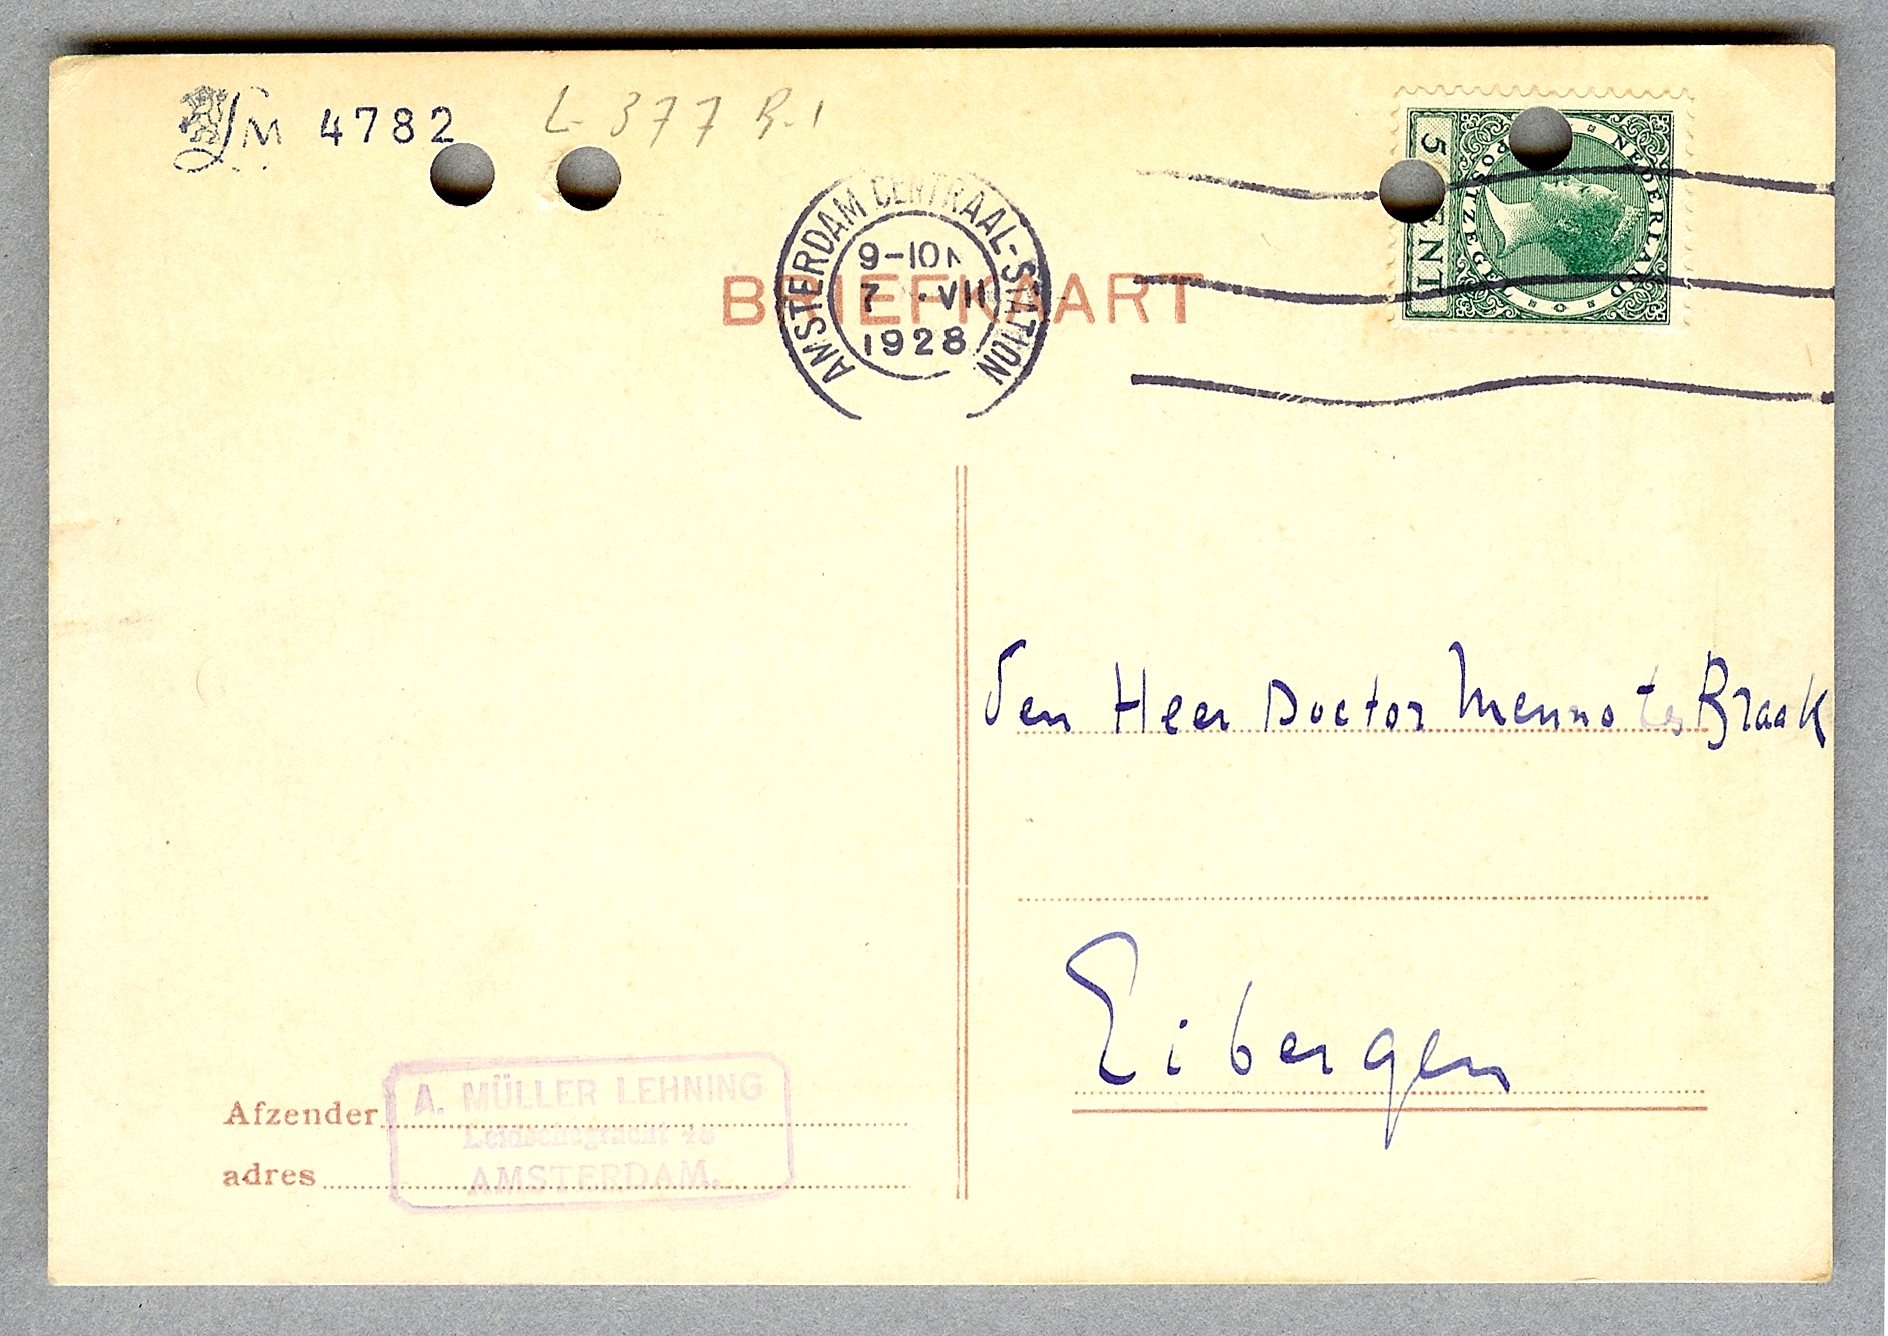 LM 4782
L. 377 B.1
AMSTERDAM CENTRAAL-STATION
9-10
7 VII
1928
BRIEFKAART
NEDERLAND
POSTZEGEL
5 CENT
Den Heer Doctor Menno ter Braak
Eibergen
Afzender
A. MÜLLER LEHNING
Leidschegracht 48
adres
AMSTERDAM.